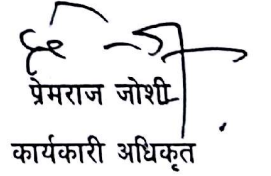 प्रेमराज जोशी
कार्यकारी अधिकृत